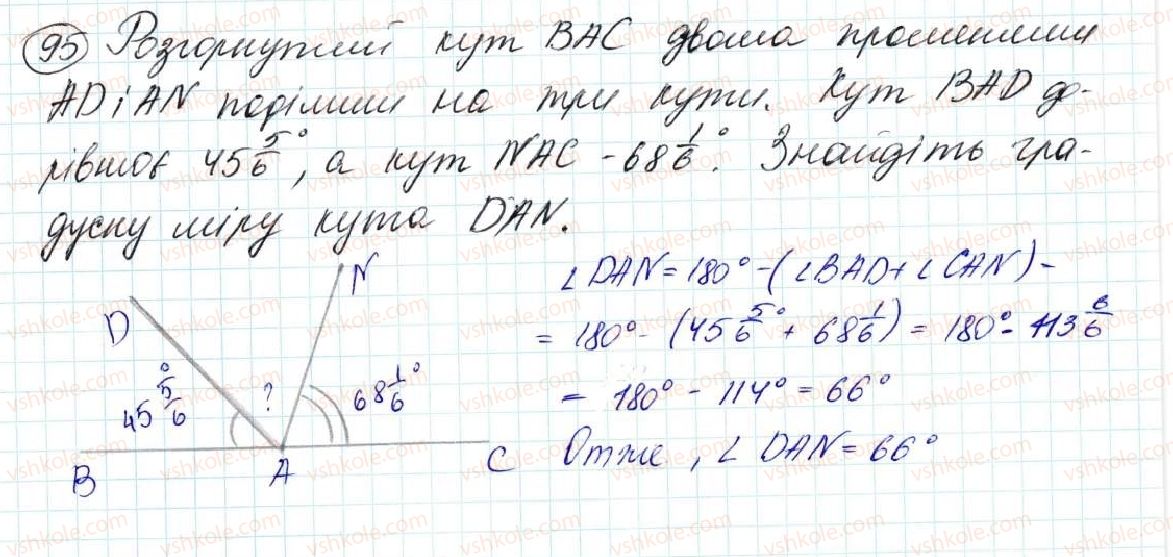 95 Розгорнутий кут BAC двома променями
AD і AN поділили на три кути. Кут BAD до-
рівнює 45 5/6°, а кут NAC - 68 1/6°. Знайдіть гра-
дусну міру кута DAN.
∠DAN = 180° - (∠BAD + ∠CAN) -
= 180° - (45 5/6° + 68 1/6) = 180° - 113 6/6
= 180° - 114° = 66°
Отже, ∠DAN = 66°
N
D
45 5/6°
?
68 1/6°
B
A
C
vshkole.com